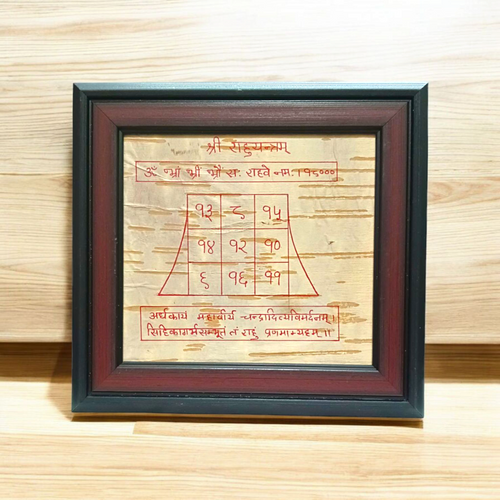 श्री राहुयन्त्रम्
ॐ भ्रां भ्रीं भ्रौं सः राहवे नमः । १८०००
१३ ८ १५
१४ १२ १०
९ १६ ११
अर्धकायं महावीर्यं चन्द्रादित्यविमर्दनम् ।
सिंहिकागर्भसम्भूतं तं राहुं प्रणमाम्यहम् ॥